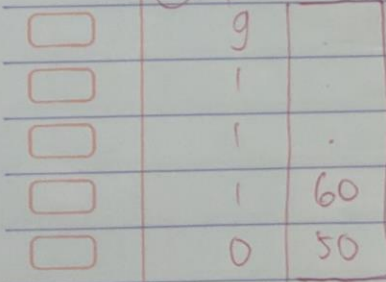 9
1
1
1 60
0 50